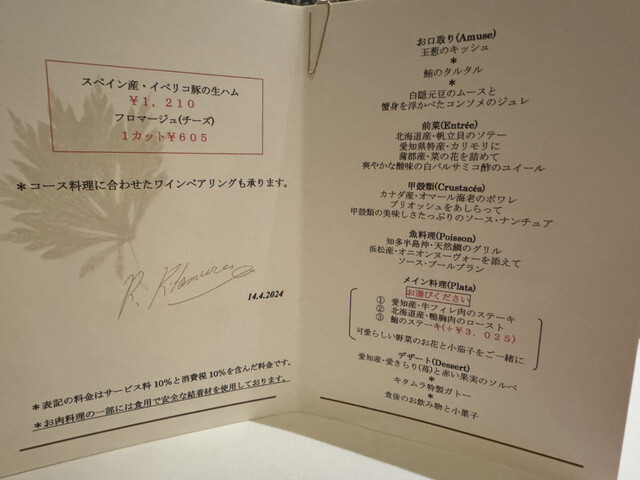 スペイン産・イベリコ豚の生ハム
￥1,210
フロマージュ(チーズ)
1カット￥605
＊コース料理に合わせたワインペアリングも承ります。
R. Kitamura
14.4.2024
＊表記の料金はサービス料10%と消費税10%を含んだ料金です。
＊お肉料理の一部には食用で安全な結着材を使用しております。
お口取り(Amuse)
玉葱のキッシュ
＊
鮪のタルタル
＊
白隠元豆のムースと
蟹身を浮かべたコンソメのジュレ
前菜(Entrée)
北海道産・帆立貝のソテー
愛知県特産・カリモリに
蒲郡産・菜の花を詰めて
爽やかな酸味の白バルサミコ酢のユイール
甲殻類(Crustacés)
カナダ産・オマール海老のポワレ
ブリオッシュをあしらって
甲殻類の美味しさたっぷりのソース・ナンチュア
魚料理(Poisson)
知多半島沖・天然鯛のグリル
浜松産・オニオンヌーヴォーを添えて
ソース・ブールブラン
メイン料理(Plats)
お選びください
① 愛知産・牛フィレ肉のステーキ
② 北海道産・鴨胸肉のロースト
③ 鮑のステーキ(+￥3,025)
可愛らしい野菜のお花と小茄子をご一緒に
デザート(Dessert)
愛知産・愛きらり(苺)と赤い果実のソルベ
＊
キタムラ特製ガトー
＊
食後のお飲み物と小菓子